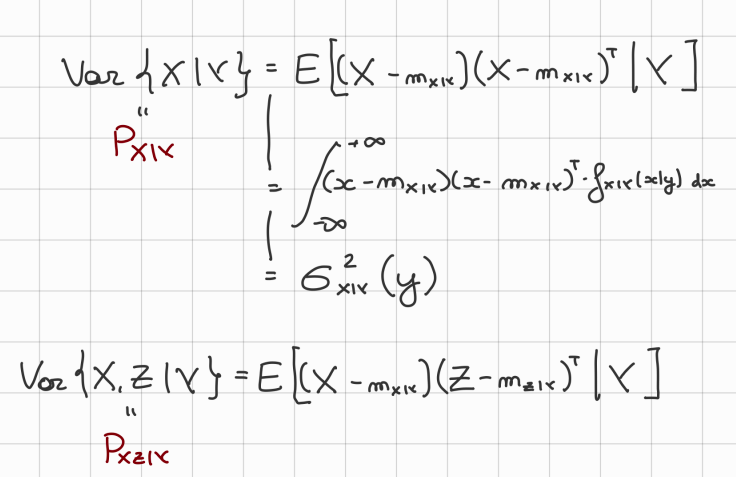 Var{X|Y} = E[(X - m_{X|Y})(X - m_{X|Y})^T | Y]
"
P_{X|Y}
= ∫_{-∞}^{+∞} (x - m_{X|Y})(x - m_{X|Y})^T · f_{X|Y}(x|y) dx
= σ²_{X|Y}(y)
Var{X,Z|Y} = E[(X - m_{X|Y})(Z - m_{Z|Y})^T | Y]
"
P_{XZ|Y}